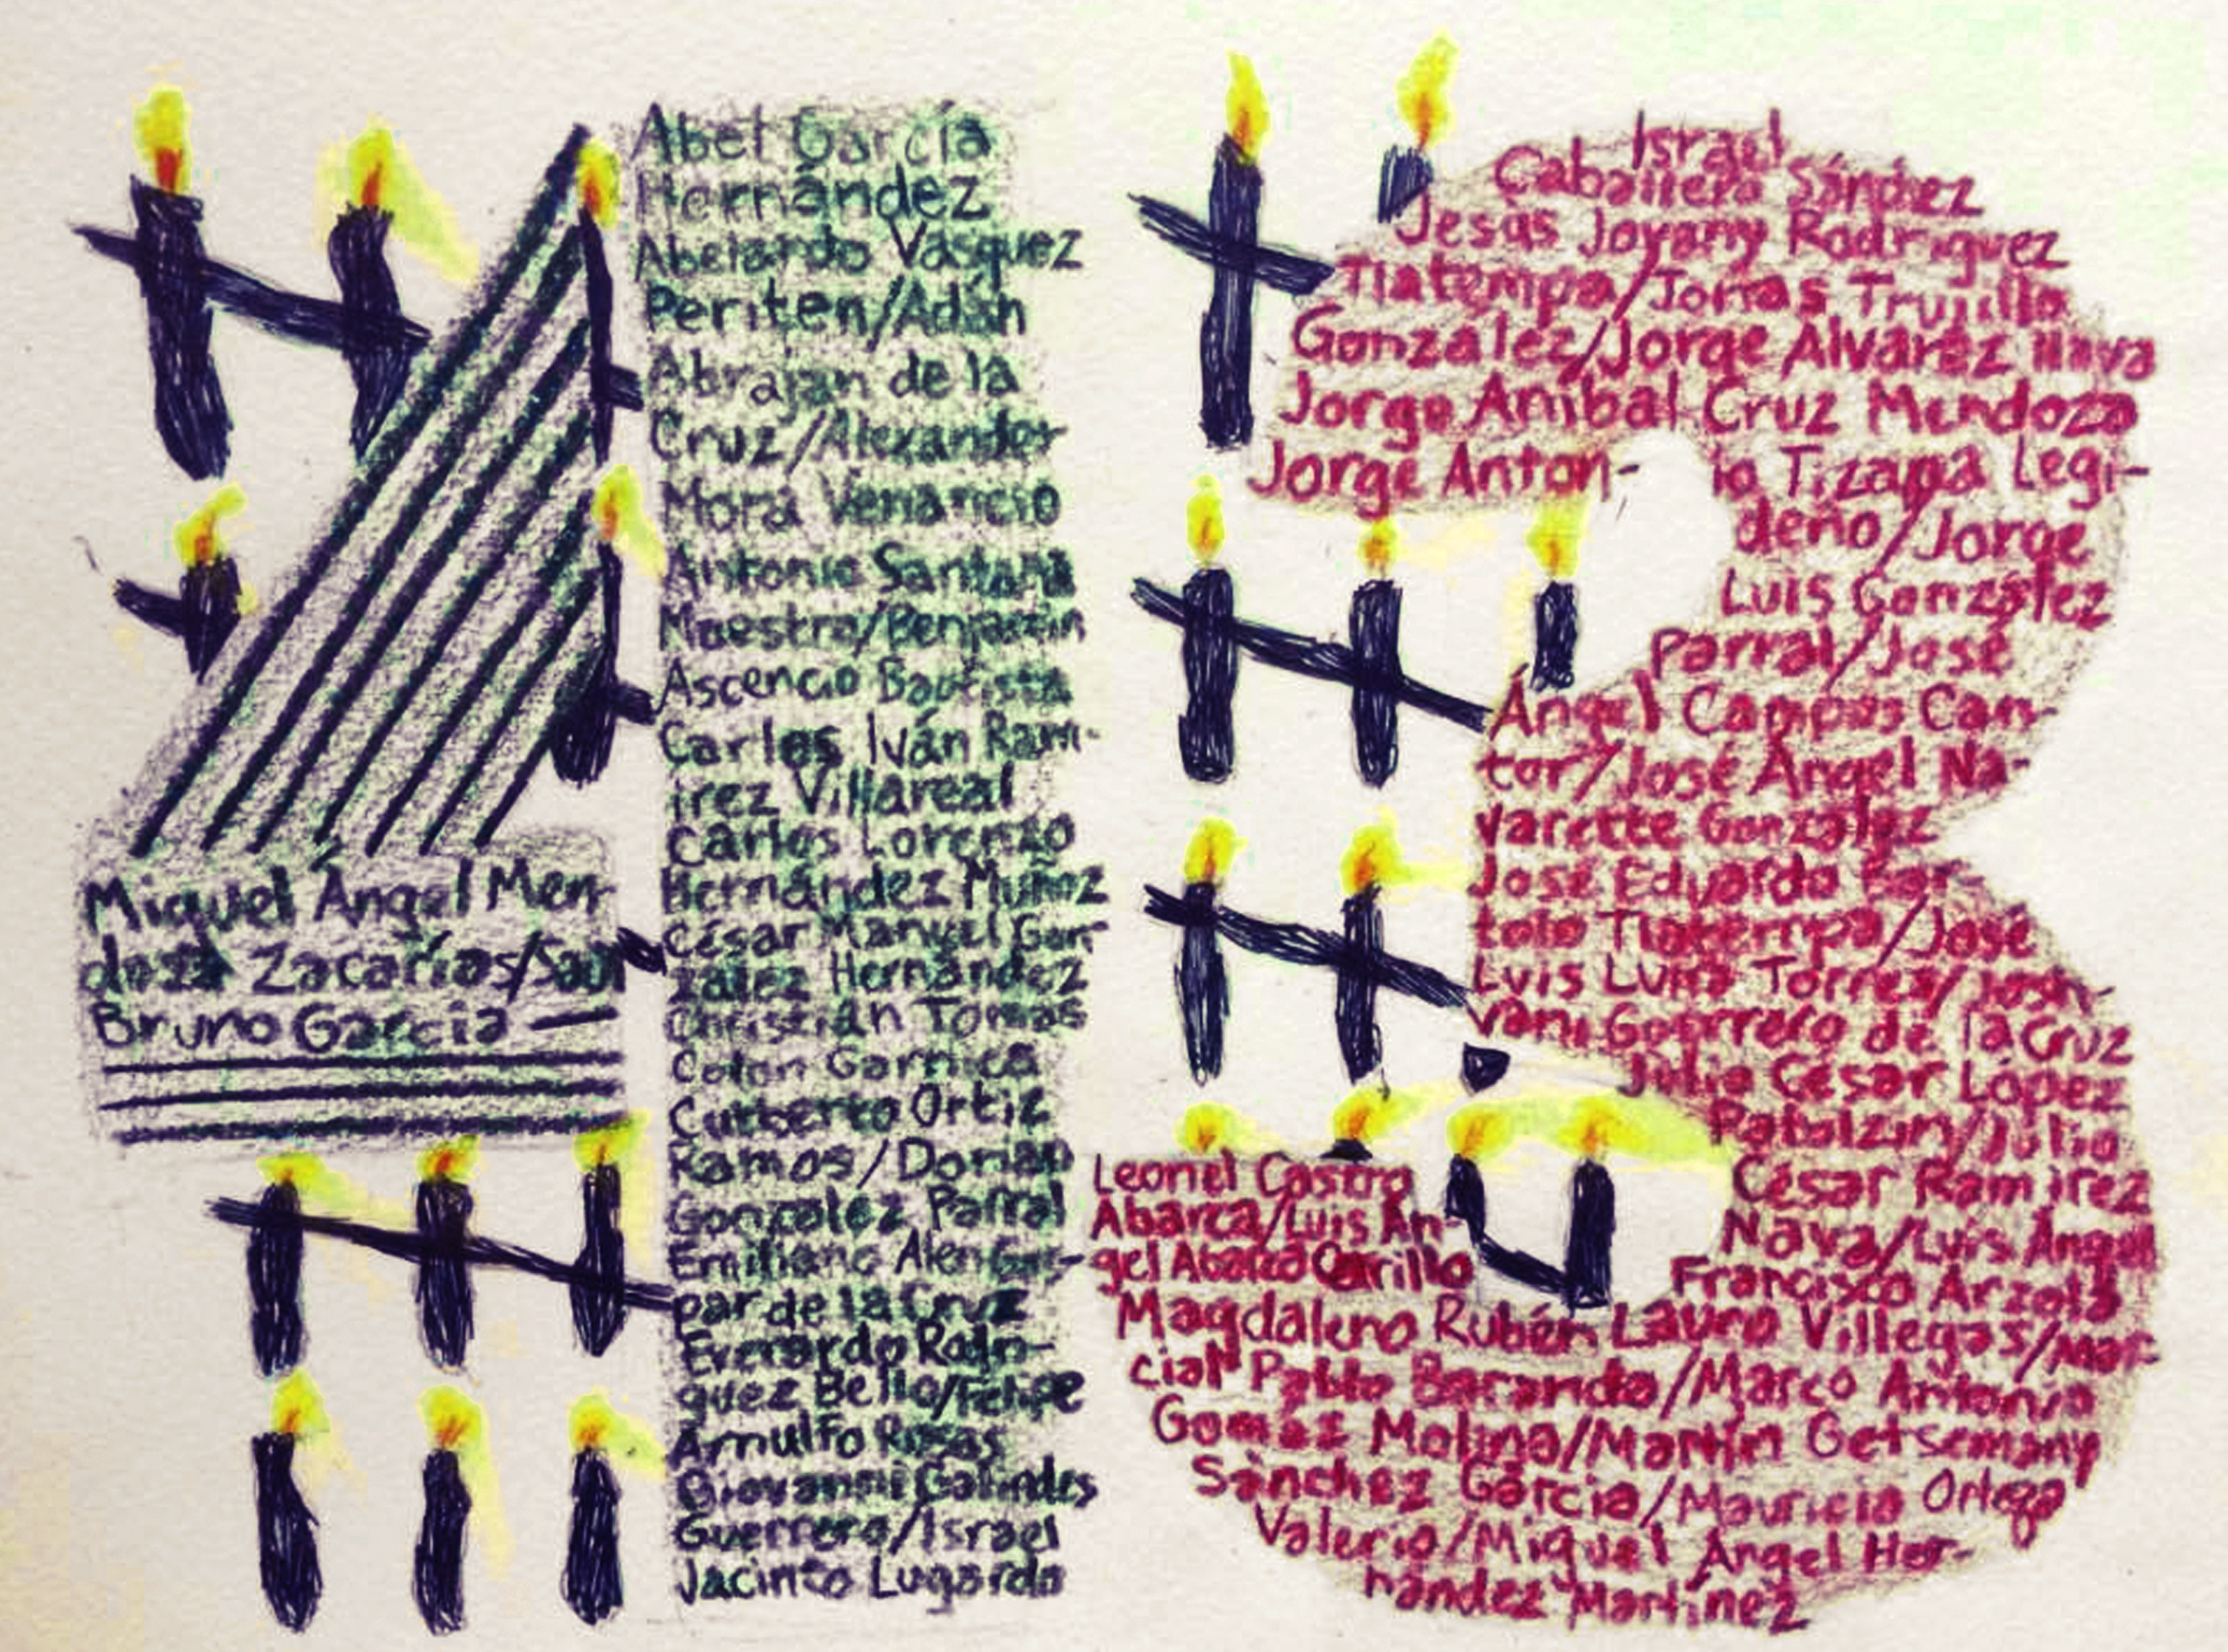 Abel García
Hernández
Abelardo Vásquez
Periten/Adán
Abrajan de la
Cruz/Alexander
Mora Venancio
Antonio Santana
Maestro/Benjamín
Ascencio Bautista
Carlos Iván Ram-
írez Villareal
Carlos Lorenzo
Hernández Muñoz
César Manuel Gon-
zález Hernández
Christian Tomas
Colon Garnica
Cutberto Ortiz
Ramos/Dorian
Gonzalez Parral
Emiliano Alen Gas-
par de la Cruz
Everardo Rodri-
guez Bello/Felipe
Arnulfo Rosas
Giovanni Galindes
Guerrero/Israel
Jacinto Lugardo
Miguel Ángel Men-
doza Zacarías/Saul
Bruno García
Israel
Caballero Sánchez
Jesús Jovany Rodríguez
Tlatempa/Jonas Trujillo
González/Jorge Alvarez Nava
Jorge Aníbal Cruz Mendoza
Jorge Anton- io Tizapa Legi-
deño/Jorge
Luis González
Parral/José
Ángel Campos Can-
tor/José Ángel Na-
varette González
José Eduardo Bar-
tolo Tlatempa/José
Luis Luna Torres/Josh-
vani Guerrero de la Cruz
Julio César López
Patolzin/Julio
César Ramírez
Nava/Luis Ángel
Francisco Arzola
Leonel Castro
Abarca/Luis Án-
gel Abarca Carrillo
Magdaleno Rubén Lauro Villegas/Mar-
cial Pablo Baranda/Marco Antonio
Gomez Molina/Martín Getsemany
Sánchez García/Mauricio Ortega
Valerio/Miguel Ángel Her-
nández Martínez